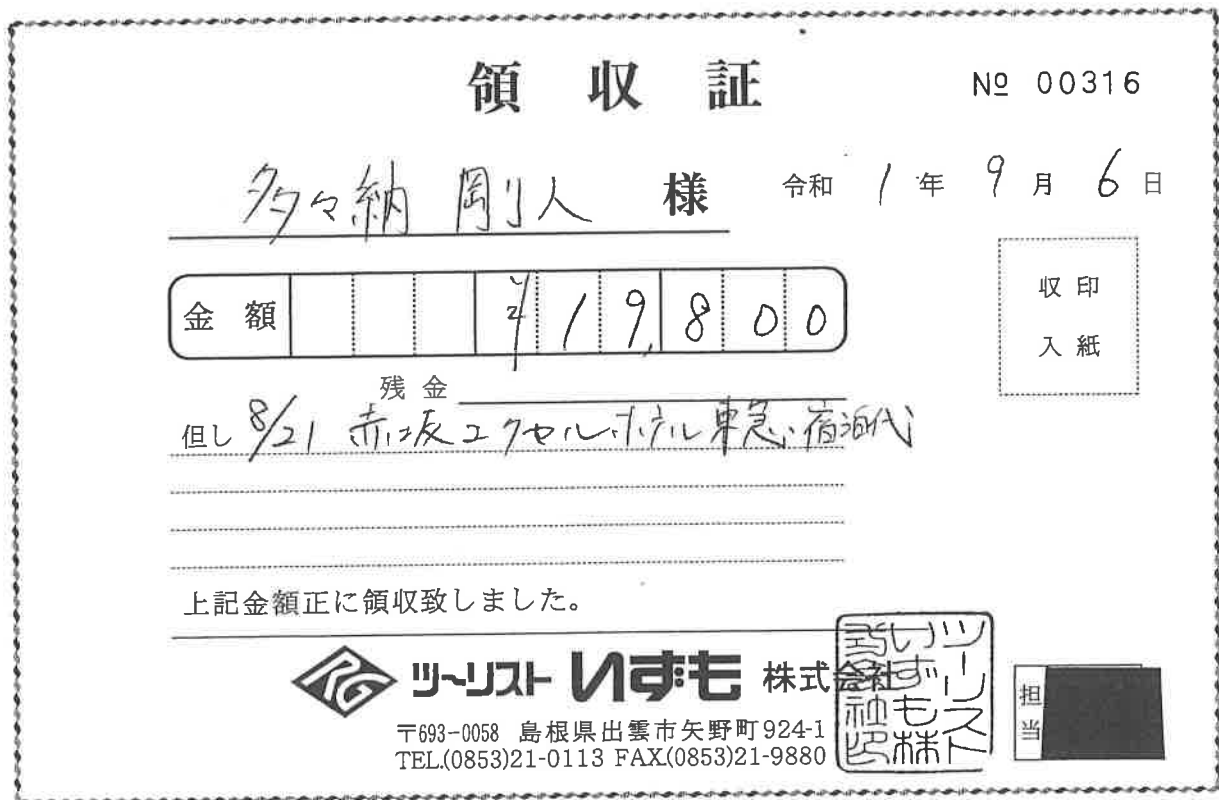 領収証
№ 00316
多々納 剛人 様
令和 1 年 9 月 6 日
金額 ¥19,800
収印
入紙
残金
但し 8/21 赤坂エクセルホテル東急 宿泊代
上記金額正に領収致しました。
RG ツーリスト いずも 株式会社
〒693-0058 島根県出雲市矢野町924-1
TEL.(0853)21-0113 FAX.(0853)21-9880
ツーリスト
いずも株
式会社印
担当